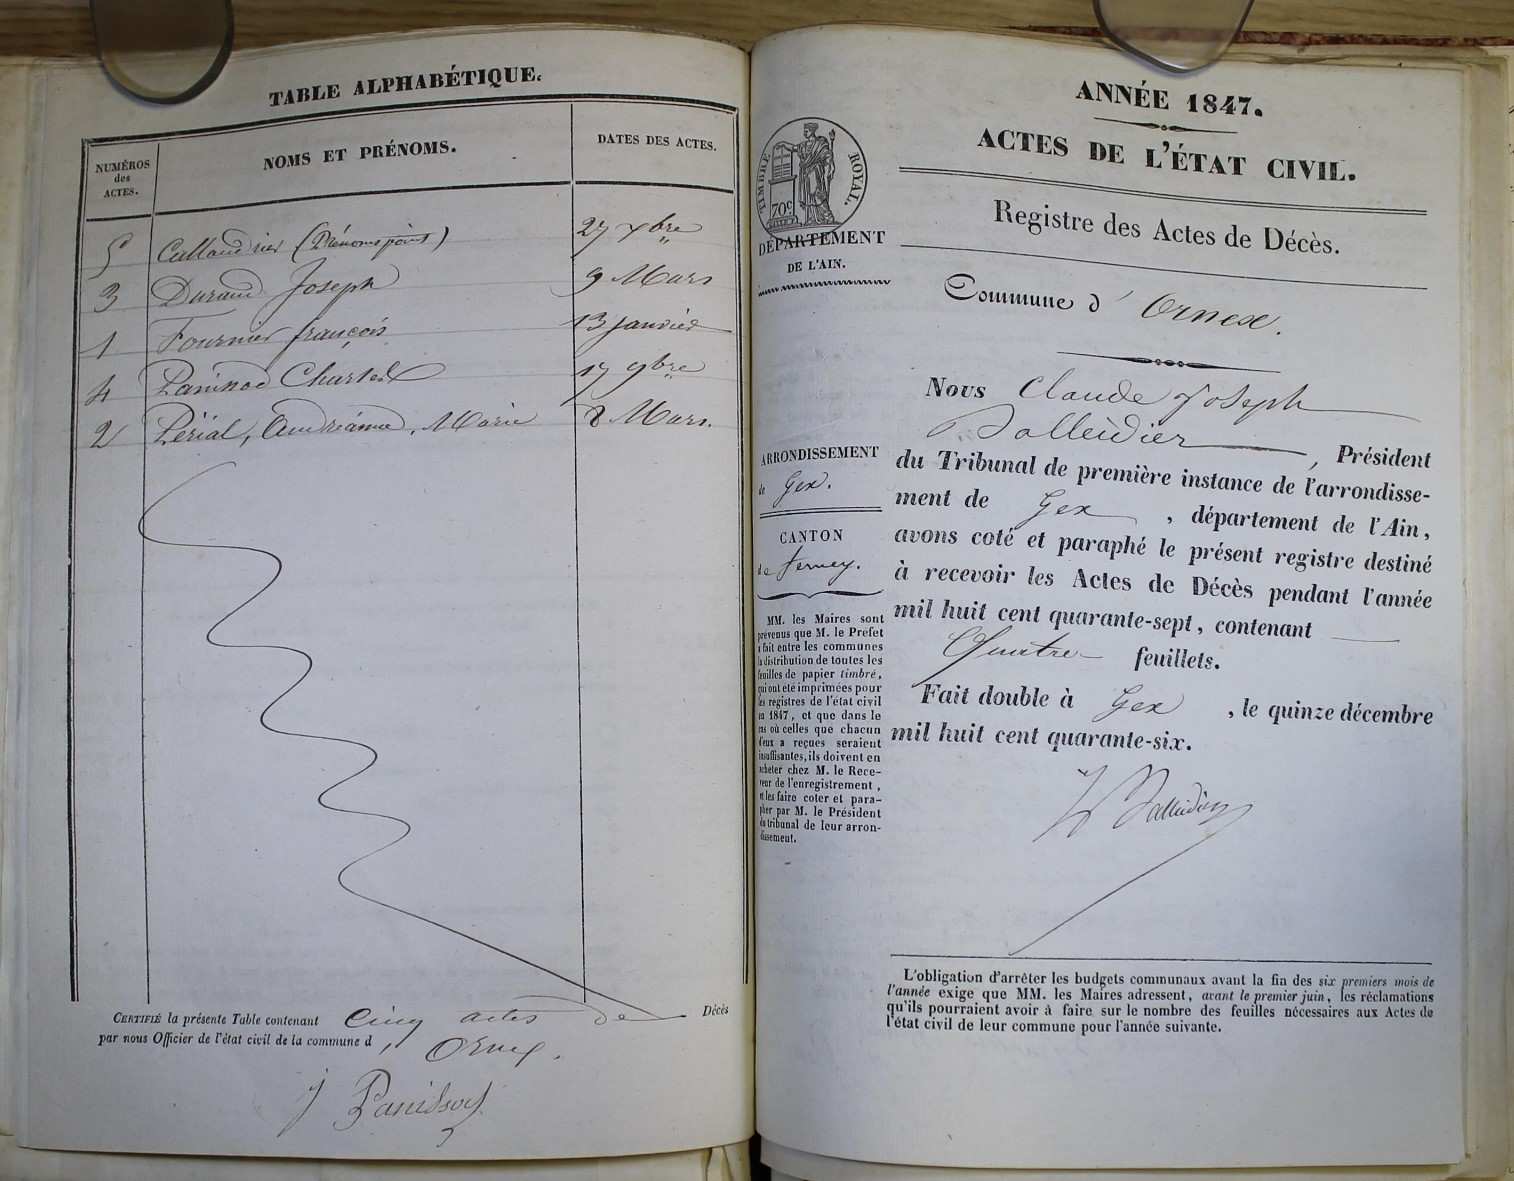 TABLE ALPHABÉTIQUE.
NUMÉROS des ACTES.
NOMS ET PRÉNOMS.
DATES DES ACTES.
5 (Prénoms 27 Xbre
3 Durand Joseph 9 Mars
1 Fournier françois 13 janvier
4 Panissod Charles 17 9bre
2 Périal, Marie 8 Mars.
CERTIFIÉ la présente Table contenant cinq actes de Décès
par nous Officier de l'état civil de la commune d'Ornex.
J Panissod
ANNÉE 1847.
ACTES DE L'ÉTAT CIVIL.
TIMBRE ROYAL.
70c
DÉPARTEMENT
DE L'AIN.
Registre des Actes de Décès.
Commune d'Ornex.
ARRONDISSEMENT
de Gex.
CANTON
de Ferney.
MM. les Maires sont
prévenus que M. le Préfet
a fait entre les communes
la distribution de toutes les
feuilles de papier timbré,
qui ont été imprimées pour
les registres de l'état civil
en 1847, et que dans le
cas où celles que chacun
d'eux a reçues seraient
insuffisantes, ils doivent en
acheter chez M. le Rece-
veur de l'enregistrement,
et les faire coter et para-
pher par M. le Président
du tribunal de leur arron-
dissement.
Nous Claude Joseph
Balleidier, Président
du Tribunal de première instance de l'arrondisse-
ment de Gex, département de l'Ain,
avons coté et paraphé le présent registre destiné
à recevoir les Actes de Décès pendant l'année
mil huit cent quarante-sept, contenant
Quatre feuillets.
Fait double à Gex, le quinze décembre
mil huit cent quarante-six.
Balleidier
L'obligation d'arrêter les budgets communaux avant la fin des six premiers mois de
l'année exige que MM. les Maires adressent, avant le premier juin, les réclamations
qu'ils pourraient avoir à faire sur le nombre des feuilles nécessaires aux Actes de
l'état civil de leur commune pour l'année suivante.